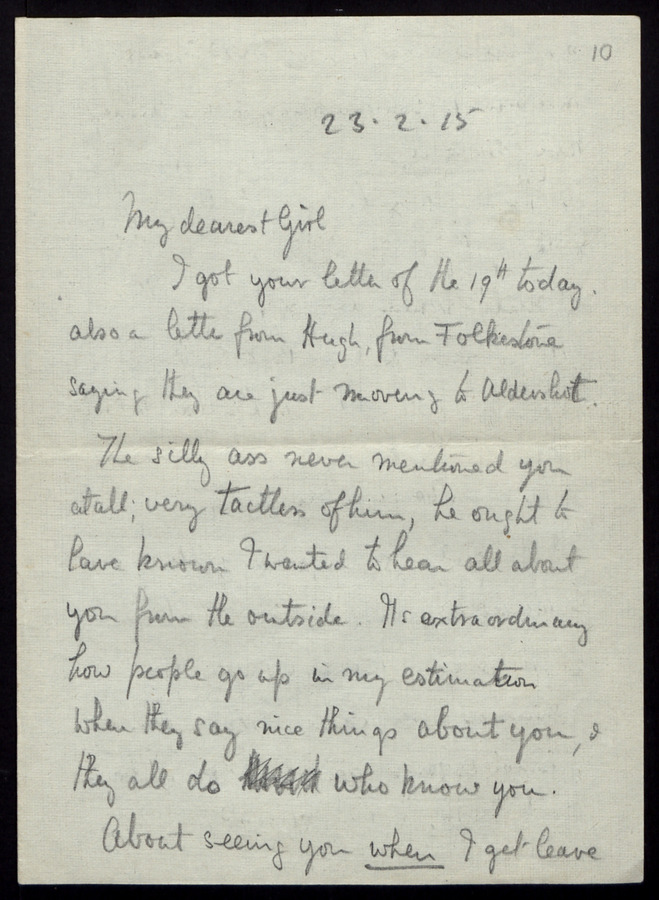 10
23. 2. 15
My dearest Girl
I got your letter of the 19th today.
also a letter from Hugh, from Folkestone
saying they are just moving to Aldershot.
The silly ass never mentioned you
atall; very tactless of him, he ought to
have known I wanted to hear all about
you from the outside. Its extraordinary
how people go up in my estimation
when they say nice things about you, &
they all do who know you.
About seeing you when I get leave